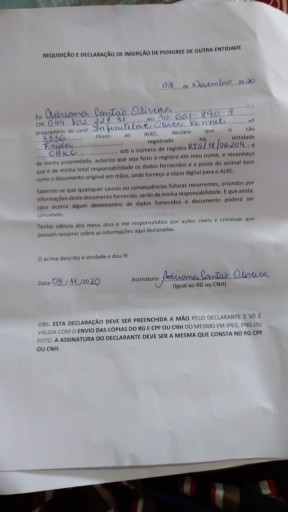 REQUISIÇÃO E DECLARAÇÃO DE INSERÇÃO DE PEDIGREE DE OUTRA ENTIDADE
03 de Novembro 2020
Eu Adriana Contão Oliveira
CPF RG
proprietário do canil Kennel nº
filiado ao ALKC, declaro que o cão
Frida registrado na entidade
CBKC, sob o número de registro, é
de minha propriedade, autorizo que seja feito o registro em meu nome, e reconheço
que é de minha total responsabilidade os dados fornecidos e a posse do animal bem
como o documento original em mãos, onde forneço a cópia digital para o ALKC.
Sabendo-se que quaisquer causas ou consequências futuras recorrentes, oriundos por
informações deste documento fornecido, serão de minha responsabilidade. E que ainda,
caso ocorra algum desencontro de dados fornecidos o documento poderá ser
cancelado.
Tenho ciência dos meus atos e me responsabilizo por ações cíveis e criminais que
possam recorrer sobre as informações aqui declaradas.
O acima descrito é verdade e dou fé
Data 03/11/2020 Assinatura: Adriana Contão Oliveira
(Igual ao RG ou CNH)
OBS: ESTA DECLARAÇÃO DEVE SER PREENCHIDA A MÃO PELO DECLARANTE E SÓ É
VÁLIDA COM O ENVIO DAS CÓPIAS DO RG E CPF OU CNH DO MESMO EM JPEG, PNG OU
FOTO. A ASSINATURA DO DECLARANTE DEVE SER A MESMA QUE CONSTA NO RG CPF
OU CNH.